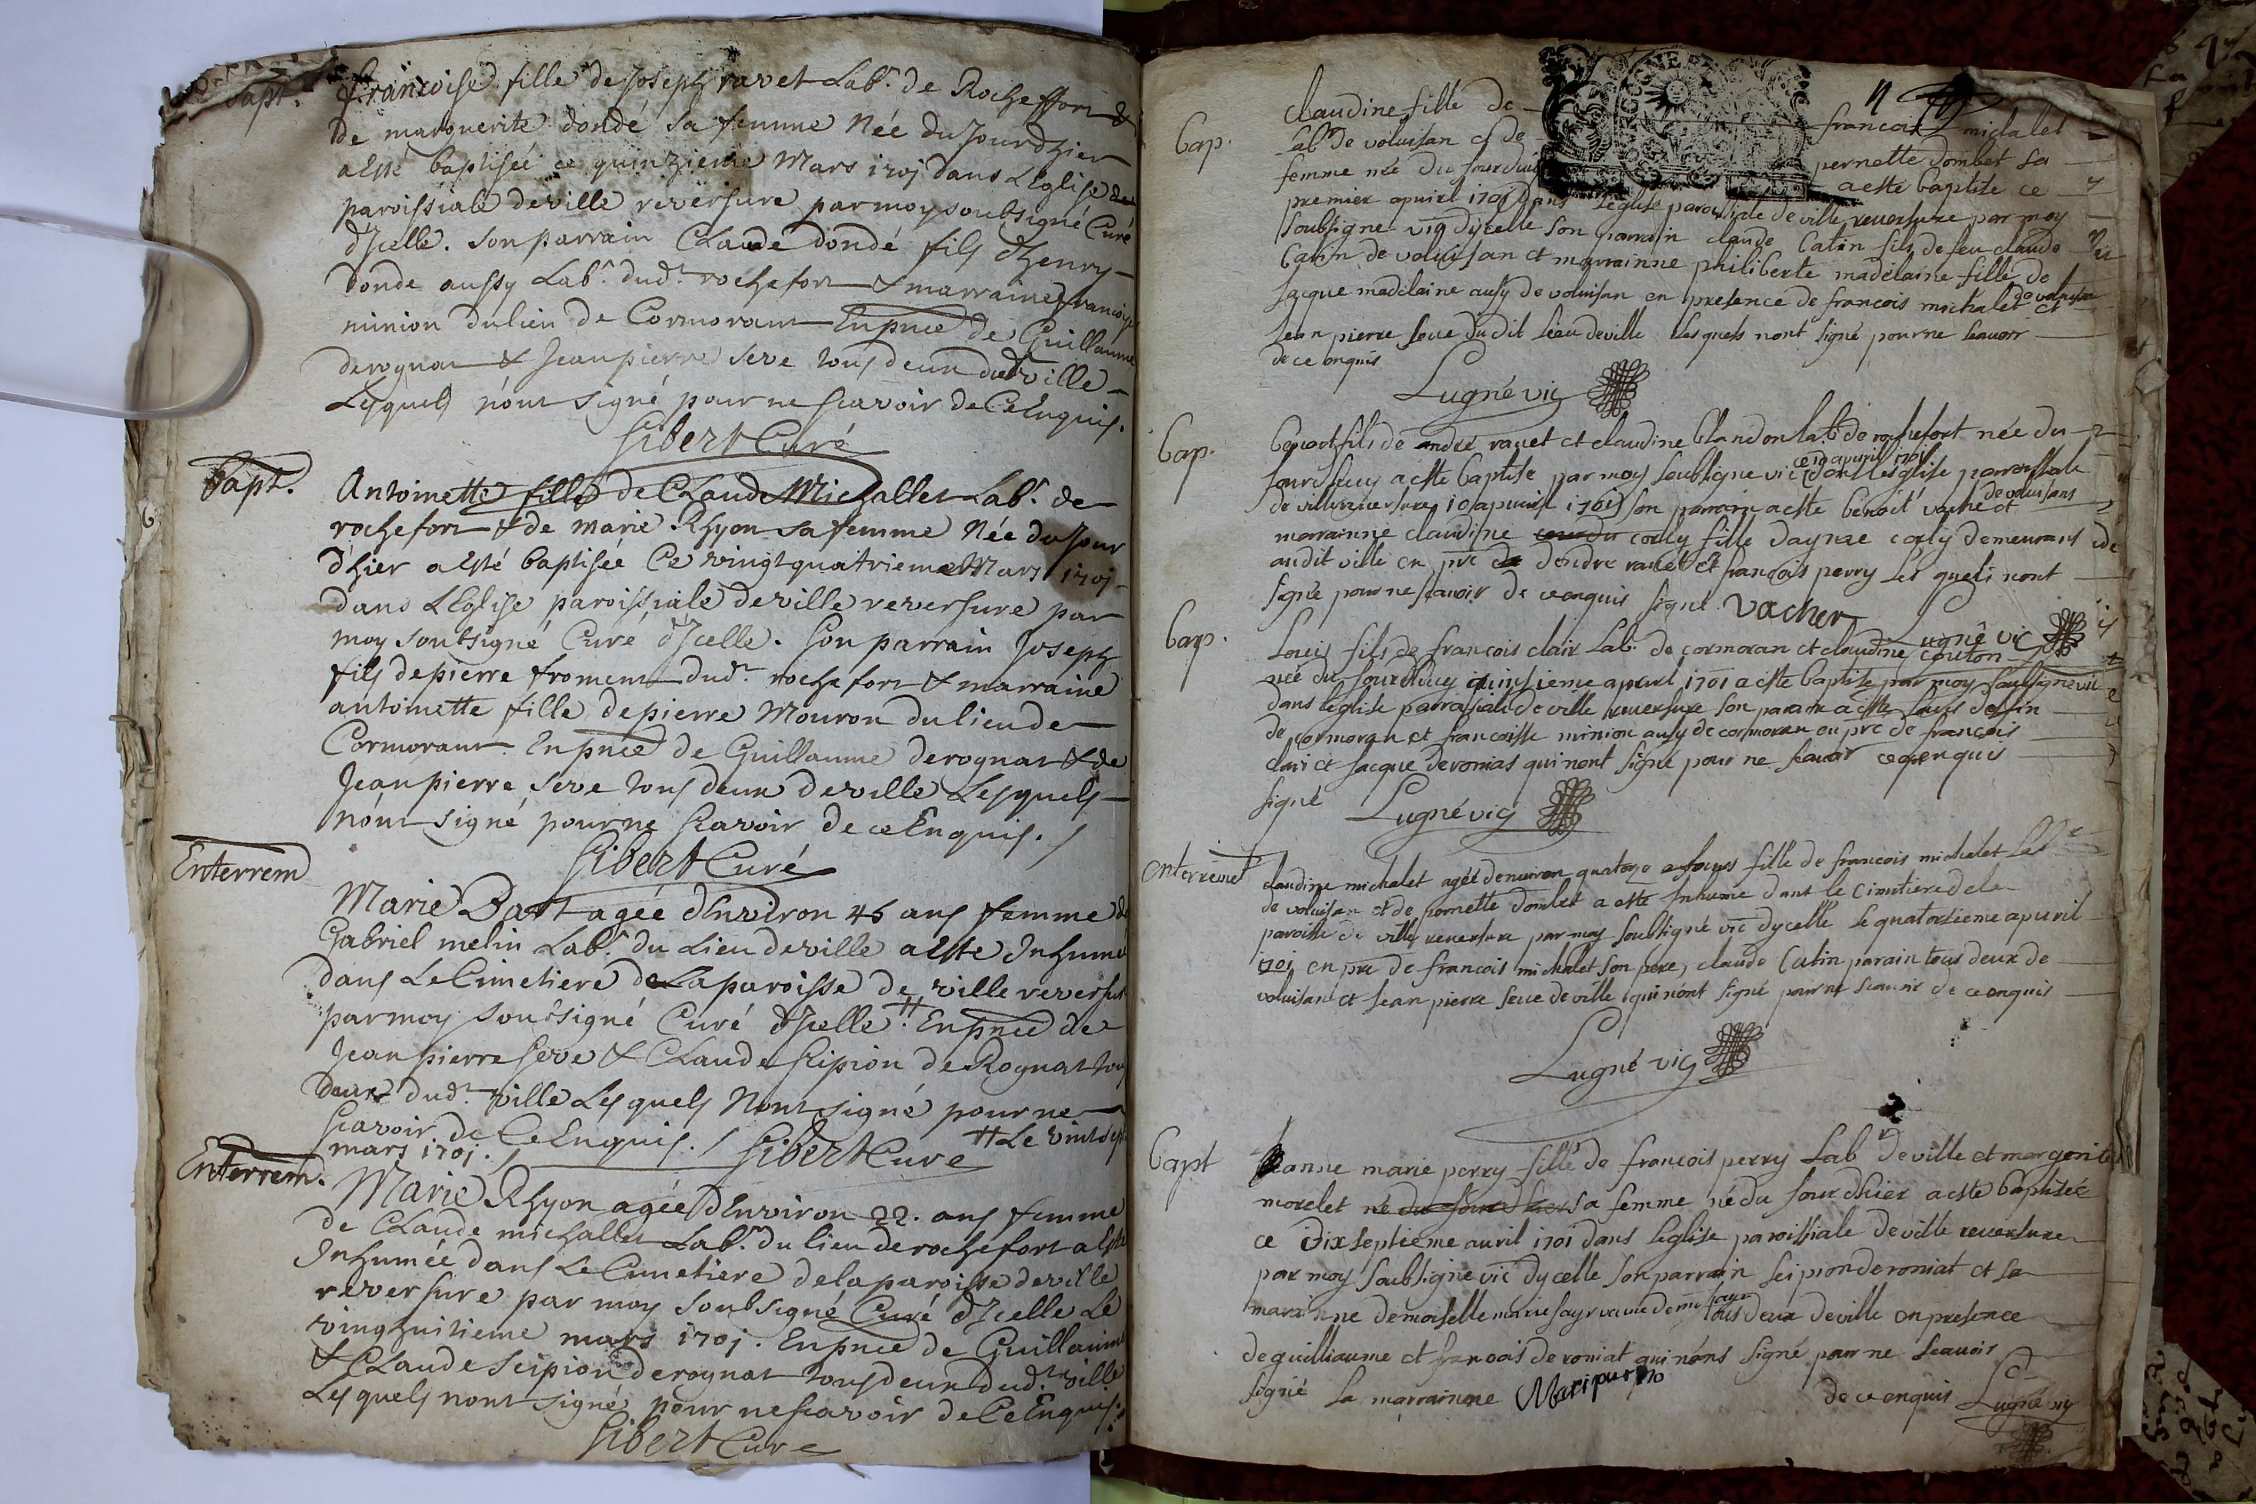 Bapt. françoise fille de Joseph ravet Labr. de Rocheffort &
de marguerite dondé sa femme Née du Jourdhier
a Esté baptisée ce quinzieme Mars 1701 dans L'Eglise
paroissiale de ville reversure par moy soubsigné Curé
d'Jcelle. Son parrain Claude dondé fils d'henry
dondé aussy Labr. dudt. rochefort & marraine francoise
minion du lieu de Cormorant En pnce de Guillaume
derognat & Jean pierre Seve tous deux dudt ville
Lesquels n'ont signé pour ne scavoir de Ce Enquis.
Gibert Curé
Bapt. Antoinette fille de Claude Michallet Labr. de
rochefort & de marie Rhyon sa femme Née du Jour
d'hier a Esté baptisée Ce vingt quatrieme Mars 1701
dans L'Eglise paroissiale de ville reversure par
moy soubsigné Curé d'Jcelle. Son parrain Joseph
fils de pierre froment dudt. rochefort & marraine
antoinette fille de pierre Mouron du lieu de
Cormorant En pnce de Guillaume derognat & de
Jean pierre Seve tous deux de ville Lesquels
n'ont signé pour ne scavoir de ce Enquis. /
Gibert Curé
Enterrem Marie Bart agée d'Environ 45 ans femme de
Gabriel melin Labr. du Lieu de ville a Esté Inhumée
dans Le Cimetiere de La paroisse de ville reversure
par moy soubsigné Curé d'Jcelle # En pnce de
Jean pierre Seve & Claude scipion de Rognat tous
deux dudt. ville Lesquels n'ont signé pour ne
scavoir de Ce Enquis. / # Le vint sept
mars 1701. / Gibert Curé
Enterrem. Marie Rhyon agée d'Environ 22. ans femme
de Claude michallet Labr. du lieu de rochefort a Esté
Inhumée dans Le Cimetiere de la paroisse de ville
reversure par moy soubsigné Curé d'Jcelle Le
vingt huitieme mars 1701. En pnce de Guillaume
& Claude scipion derognat tous deux dudt. ville
Lesquels n'ont signé pour ne scavoir de Ce Enquis.
Gibert Curé
claudine fille de francois michalet
Bap. Labr de voluisan et de pernette dombet sa
femme née du jourdhuy a esté baptisé ce
premier apuril 1701 dans l'eglise paroissiale de ville reuersure par moy
soubsigné vic dycelle son parrain claude Catin fils de feu claude
Catin de voluisan et marrainne philiberte madelaine fille de
Jacque madelaine ausy de voluisan en presence de francois michalet de voluisan et
Jean pierre seue du dit lieu deville lesquels nont signé pour ne scauoir
de ce enquis
Lugné vic
Bap. benoct fils de andré rauet et claudine blandon Labr de rochefort née du
jourdhuy a esté baptisé par moy soubsigné vic ce 10 apuril 1701 dans leglise parroissiale
de ville reuersure 10 apuril 1701 son parrain a esté benoit vaché de voluisans et
marrainne claudine couly fille daynae couly demeurans
audit ville en pnc dandré rauet et françois perry les quels nont
signé pour ne scauoir de ce enquis signé Vacher
Lugné vic
Bap. Louis fils de francois clair Labr. de cormoran et claudine couton
née du jourdhuy quinsieme apuril 1701 a esté baptisé par moy soubsigné vic
dans leglise parrossiale de ville reuersure son parain a esté Louis
de cormoran et francoisse minion ausy de cormoran en pnc de françois
clair et Jacque deronias qui nont signé pour ne scauoir ce enquis
signé Lugné vic
Enterrement claudine michalet agée denuiron quatorze jours fille de francois michalet Labr
de voluisan et de pernette dombet a esté inhumé dans le cimitiere de la
paroisse de ville reuersure par moy soubsigné vic dycelle le quatorsieme apuril
1701 en pnc de francois michalet son pere, claude Catin parain tous deux de
voluisan et Jean pierre seue de ville qui nont signé pour ne scauoir de ce enquis
Lugné vic
Bapt Jeanne marie perry fille de françois perry Labr deville et margerite
morelet né du jour dhier sa femme né du jour dhier a esté baptisée
ce dix septieme auril 1701 dans leglise paroissiale de ville reuersure
par moy soubsigné vic dycelle son parrain scipion deroniat et sa
marainne demoiselle marie tous deux deville en presence
de guilliaume et francois deroniat qui nons signé pour ne scauoir
signé la marrainne de ce enquis Lugné vic